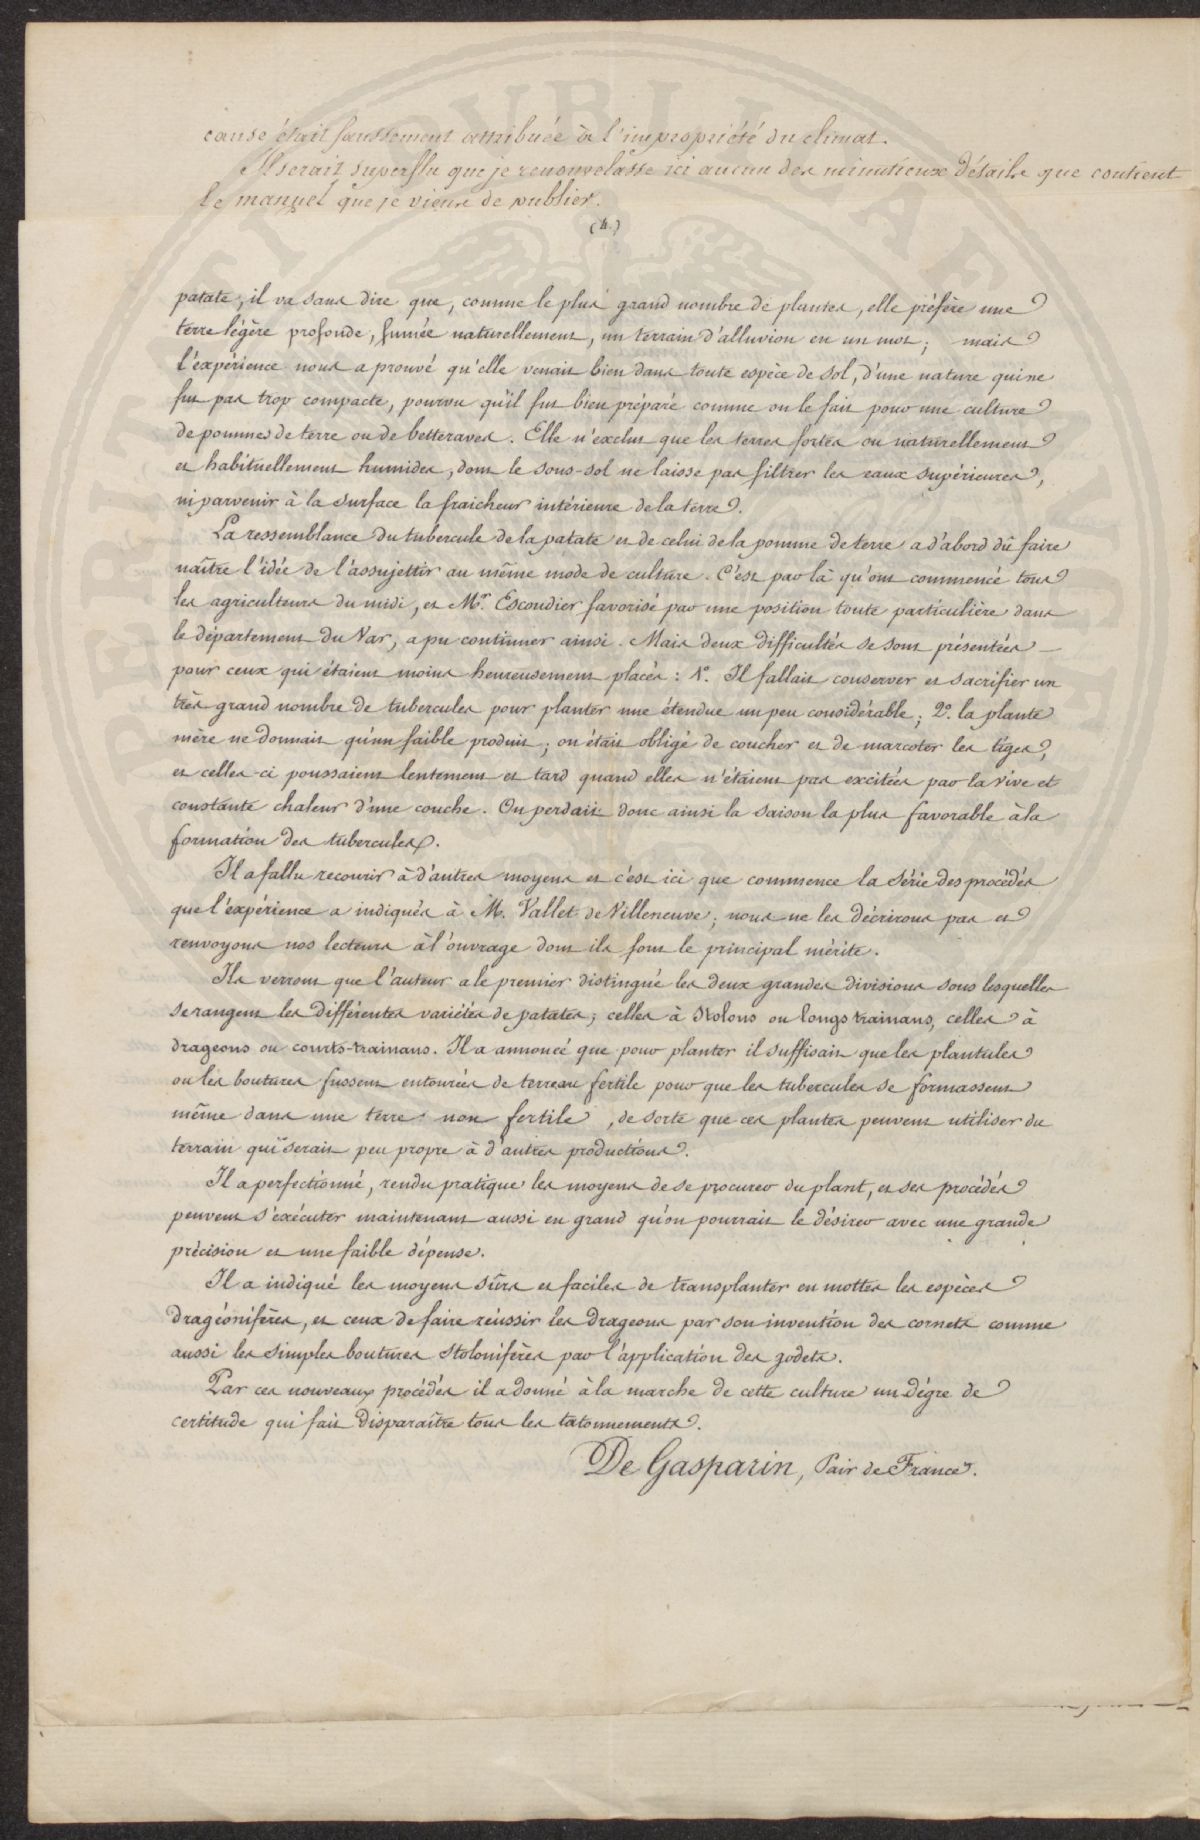 cause était faussement attribuée à l'impropriété du climat.
Il serait superflu que je renouvelasse ici aucun des minutieux détails que contient
le manuel que je viens de publier.
(4.)
patate, il va sans dire que, comme le plus grand nombre de plantes, elle préfère une
terre légère profonde, fumée naturellement, un terrain d'alluvion en un mot; mais
l'expérience nous a prouvé qu'elle venait bien dans toute espèce de sol, d'une nature qui ne
fut pas trop compacte, pourvu qu'il fut bien préparé comme on le fait pour une culture
de pommes de terre ou de betteraves. Elle n'exclut que les terres fortes ou naturellement
et habituellement humides, dont le sous-sol ne laisse pas filtrer les eaux supérieures,
ni parvenir à la surface la fraicheur intérieure de la terre.
La ressemblance du tubercule de la patate et de celui de la pomme de terre a d'abord dû faire
naître l'idée de l'assujettir au même mode de culture. C'est par là qu'ont commencé tous
les agriculteurs du midi, et Mr. Escoudier favorisé par une position toute particulière dans
le département du Var, a pu continuer ainsi. Mais deux difficultés se sont présentées
pour ceux qui étaient moins heureusement placés: 1º. Il fallait conserver et sacrifier un
très grand nombre de tubercules pour planter une étendue un peu considérable; 2º. la plante
mère ne donnait qu'un faible produit; on était obligé de coucher et de marcoter les tiges,
et celles-ci poussaient lentement et tard quand elles n'étaient pas excitées par la vive et
constante chaleur d'une couche. On perdait donc ainsi la saison la plus favorable à la
formation des tubercules.
Il a fallu recourir à d'autres moyens et c'est ici que commence la série des procédés
que l'expérience a indiqués à M. Vallet de Villeneuve; nous ne les décrirons pas et
renvoyons nos lecteurs à l'ouvrage dont ils font le principal mérite.
Ils verront que l'auteur a le premier distingué les deux grandes divisions sous lesquelles
se rangent les différentes variétés de patates; celles à stolons ou longs trainans, celles à
drageons ou courts-trainans. Il a annoncé que pour planter il suffisait que les plantules
ou les boutures fussent entourées de terreau fertile pour que les tubercules se formassent
même dans une terre non fertile, de sorte que ces plantes peuvent utiliser du
terrain qui serait peu propre à d'autres productions.
Il a perfectionné, rendu pratique les moyens de se procurer du plant, et ses procédés
peuvent s'exécuter maintenant aussi en grand qu'on pourrait le désirer avec une grande
précision et une faible dépense.
Il a indiqué les moyens sûrs et faciles de transplanter en mottes les espèces
dragéonifères, et ceux de faire réussir les drageons par son invention des cornets comme
aussi les simples boutures stolonifères par l'application des godets.
Par ces nouveaux procédés il a donné à la marche de cette culture un dégre de
certitude qui fait disparaître tous les tatonnements.
De Gasparin, Pair de France.